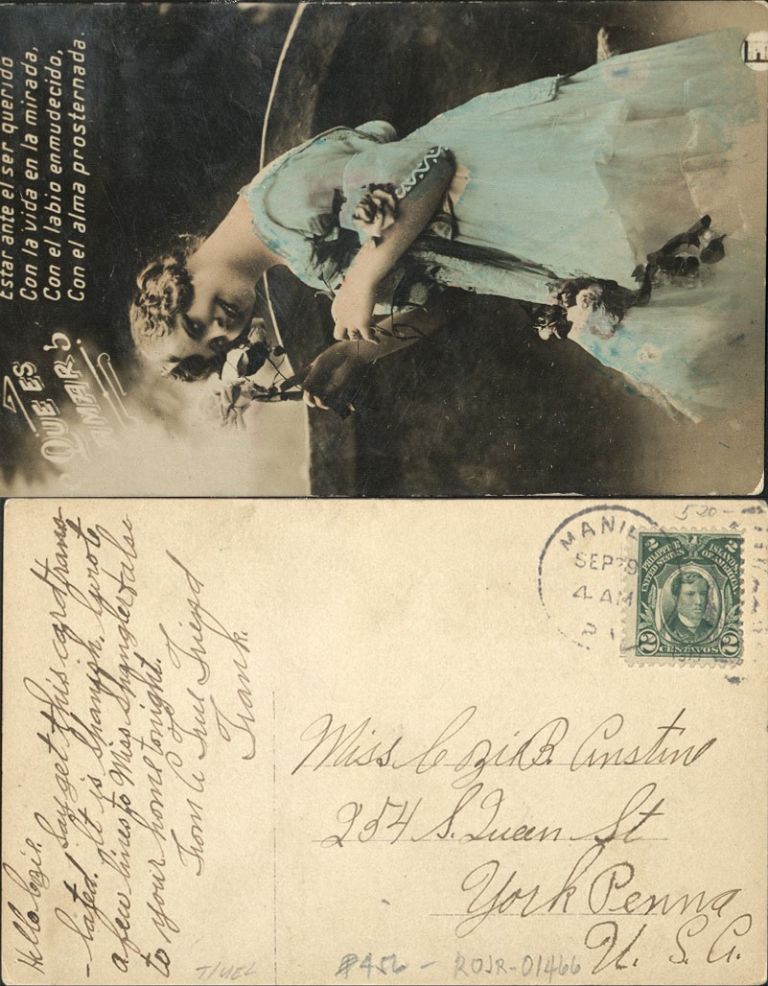 ¿QUE ES
AMAR?
Estar ante el ser querido
Con la vida en la mirada,
Con el labio enmudecido,
Con el alma prosternada.
MANIL
SEP 29
4 AM
520-
PHILIPPINE ISLANDS
UNITED STATES OF AMERICA
2 2
2 CENTAVOS 2
Hello Cozie.
Say get this card trans-
-lated. It is Spanish. I wrote
a few lines to Miss Spangler also
to your home tonight.
From A True Friend
Frank.
Miss Cozie B. Anstine
254 S. Queen St
York Penna
U. S. A.
$456 - ROJR-01466